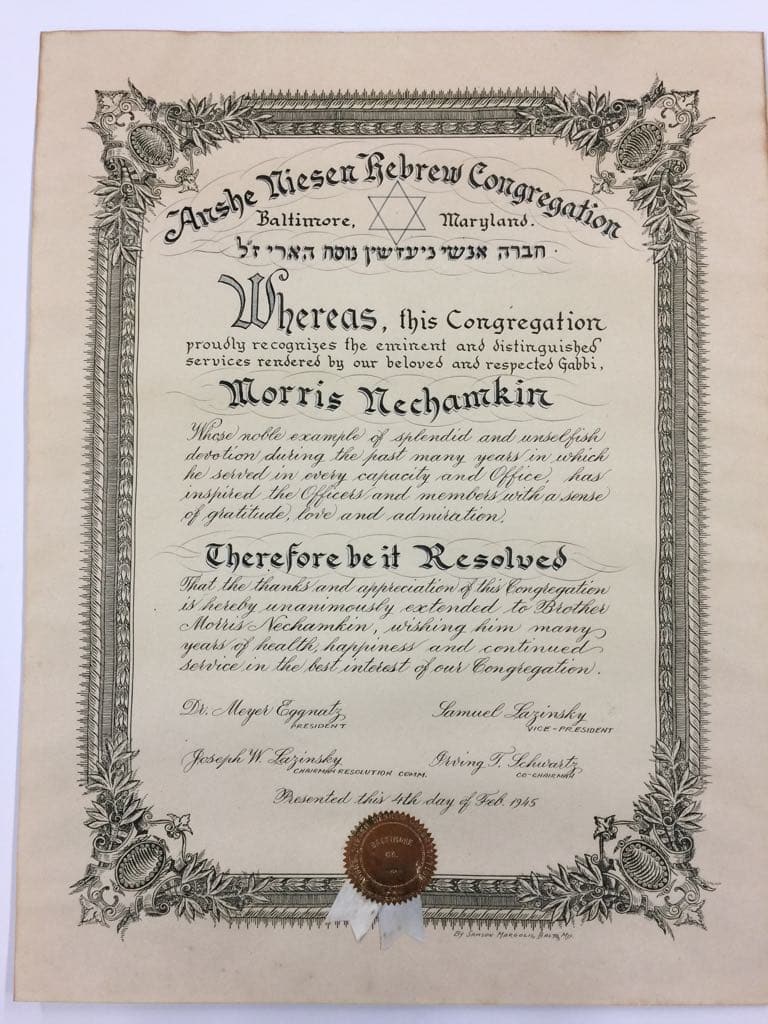 Anshe Niesen Hebrew Congregation
Baltimore, Maryland.
חברה אנשי ניעזשין נוסח הארי ז"ל
Whereas, this Congregation
proudly recognizes the eminent and distinguished
services rendered by our beloved and respected Gabbi,
Morris Nechamkin
Whose noble example of splendid and unselfish
devotion during the past many years in which
he served in every capacity and Office, has
inspired the Officers and members with a sense
of gratitude, love and admiration,
Therefore be it Resolved
That the thanks and appreciation of this Congregation
is hereby unanimously extended to Brother
Morris Nechamkin, wishing him many
years of health, happiness and continued
service in the best interest of our Congregation.
Dr. Meyer Eggnatz Samuel Lazinsky
PRESIDENT VICE-PRESIDENT
Joseph W. Lazinsky Irving T. Schwartz
CHAIRMAN RESOLUTION COMM. CO-CHAIRMAN
Presented this 4th day of Feb. 1945
BALTIMORE
By Samson Margolis, Balto, Md.